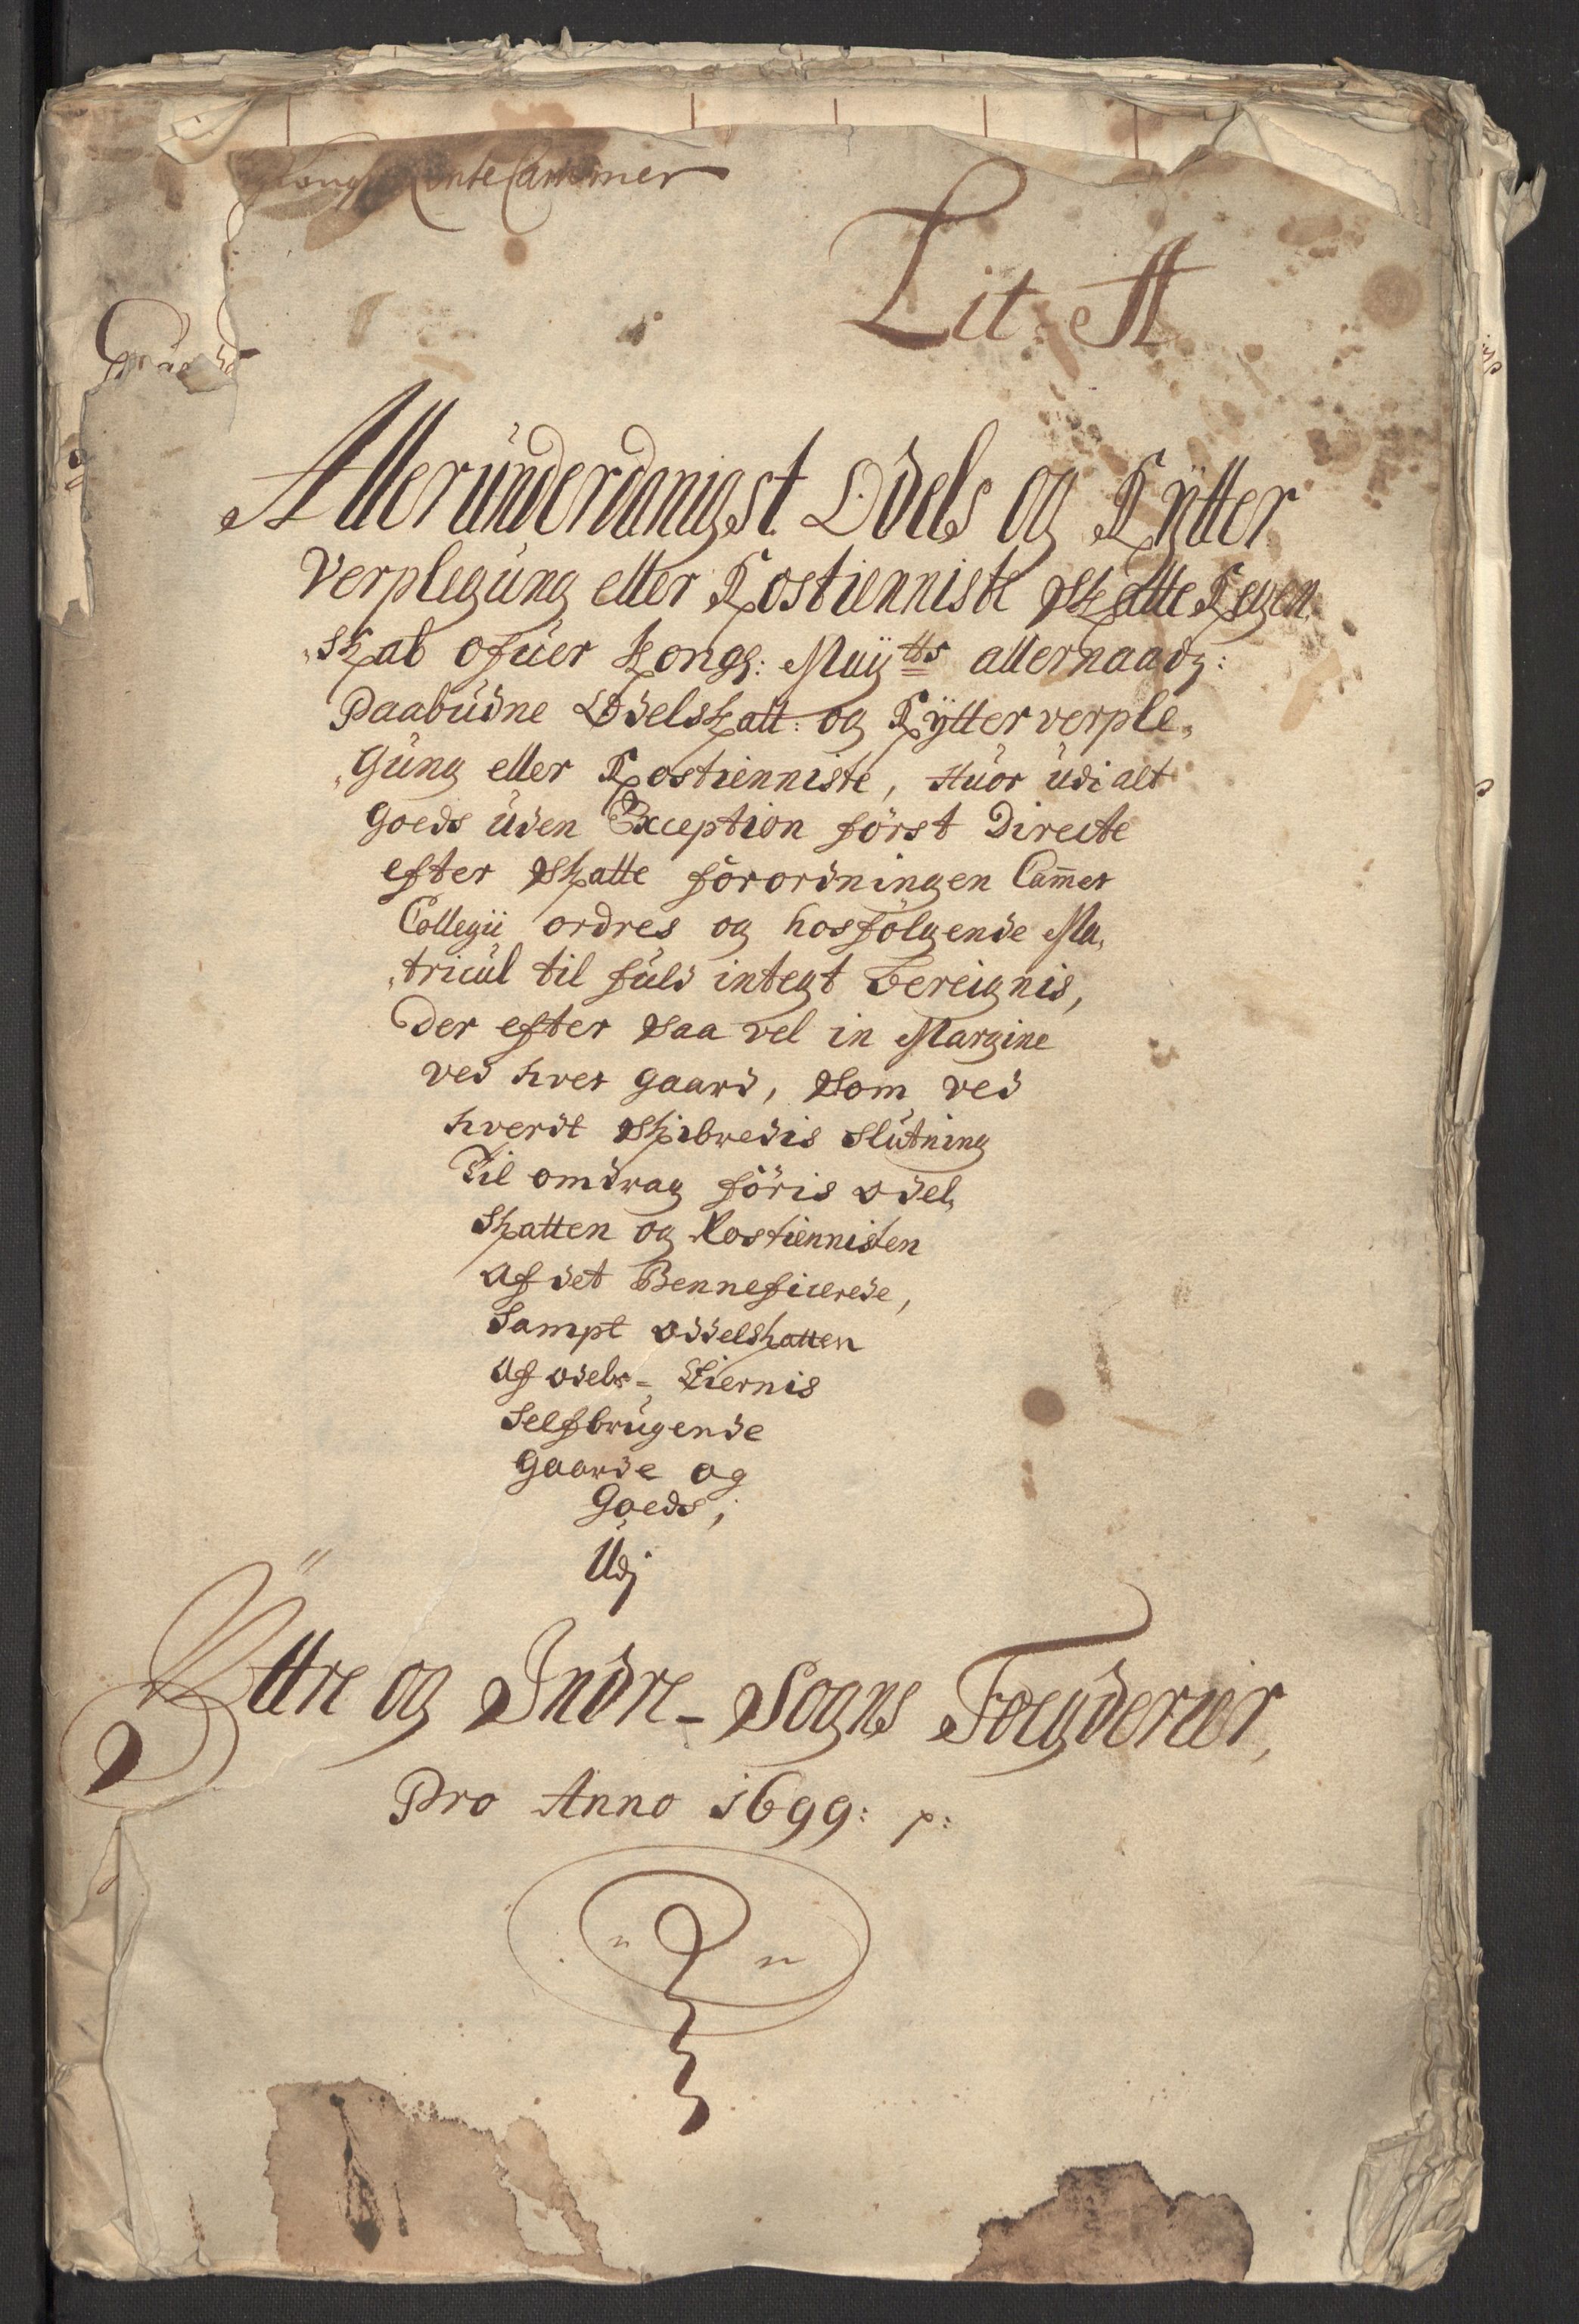 Rente Cammer
Lit: A
Alleründerdanigst Odels og Rÿtter
verplegüng eller Rostienniste Skatte Regen„
„skab ofüer Kongl: Maÿtts allernaadg:
Paabüdne Odelskatt: og Rÿtter verple„
„güng eller Rostienniste, Hüor üdi alt
goeds üden Exception först Directe
efter Skatte forordningen Cam̄er
Collegii ordres og hosfölgende Ma„
„tricül til füld integt Bereignis,
der efter saa vel in Margine
ved hver gaard, som ved
hverdt Skibredis slütning
Til omdrag föris odel„
skatten og Rostiennisten
af det Benneficerede,
sampt oddelskatten
af odels- Eiernis
selfbrügende
gaarde og
Goeds,
Üdj
Ÿttre og Indre- Sogns Foegderier,
Pro Anno 1699: p: